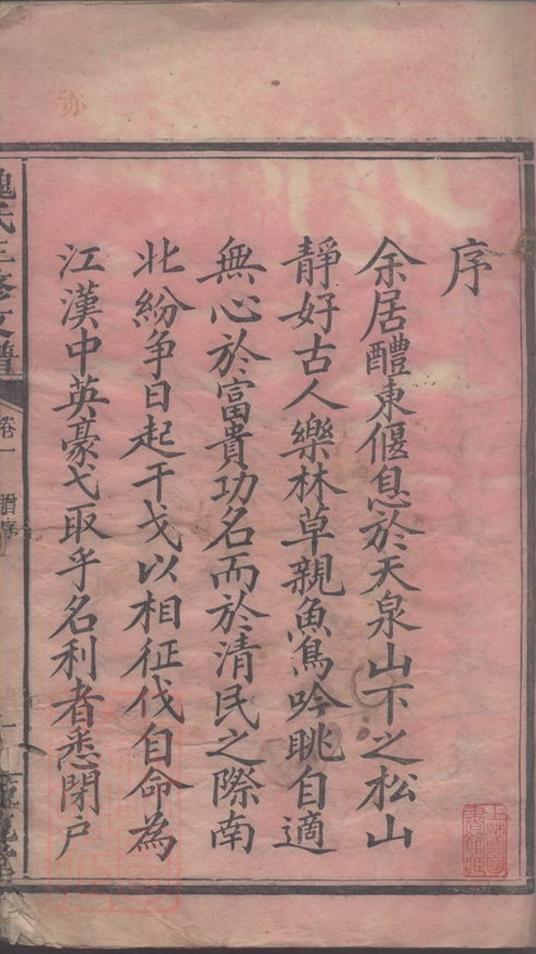 序
余居醴東偃息於天泉山下之松山
靜好古人樂林草親魚鳥吟眺自適
無心於富貴功名而於清民之際南
北紛争日起干戈以相征伐自命為
江漢中英豪弋取乎名利者悉閉户
氏三修支譜
卷一